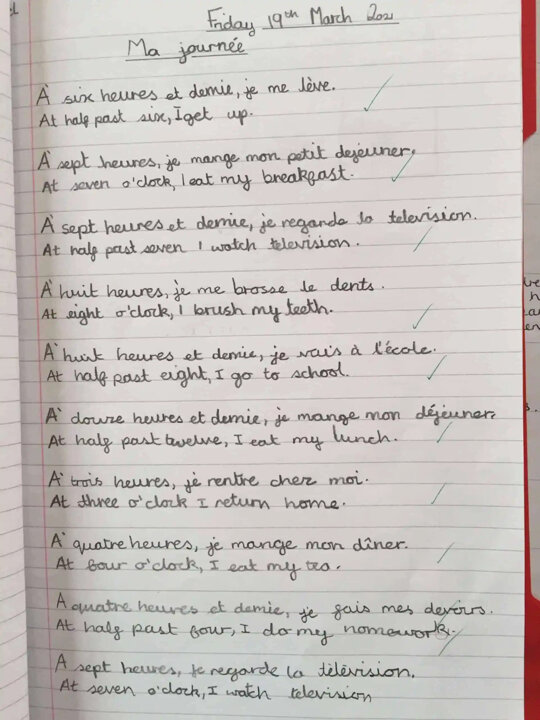 Friday 19th March 2021
Ma journée
À six heures et demie, je me lève.
At half past six, I get up.
À sept heures, je mange mon petit dejeuner.
At seven o'clock, I eat my breakfast.
À sept heures et demie, je regarde la television.
At half past seven I watch television.
À huit heures, je me brosse le dents.
At eight o'clock, I brush my teeth.
À huit heures et demie, je vais à l'école.
At half past eight, I go to school.
À douze heures et demie, je mange mon déjeuner.
At half past twelve, I eat my lunch.
À trois heures, je rentre chez moi.
At three o'clock I return home.
À quatre heures, je mange mon dîner.
At four o'clock, I eat my tea.
A quatre heures et demie, je fais mes devoirs.
At half past four, I do my homework.
A sept heures, je regarde la télévision.
At seven o'clock, I watch television